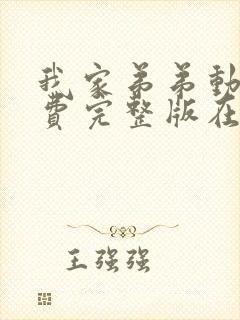 我家弟弟動
費完整版在
王强强